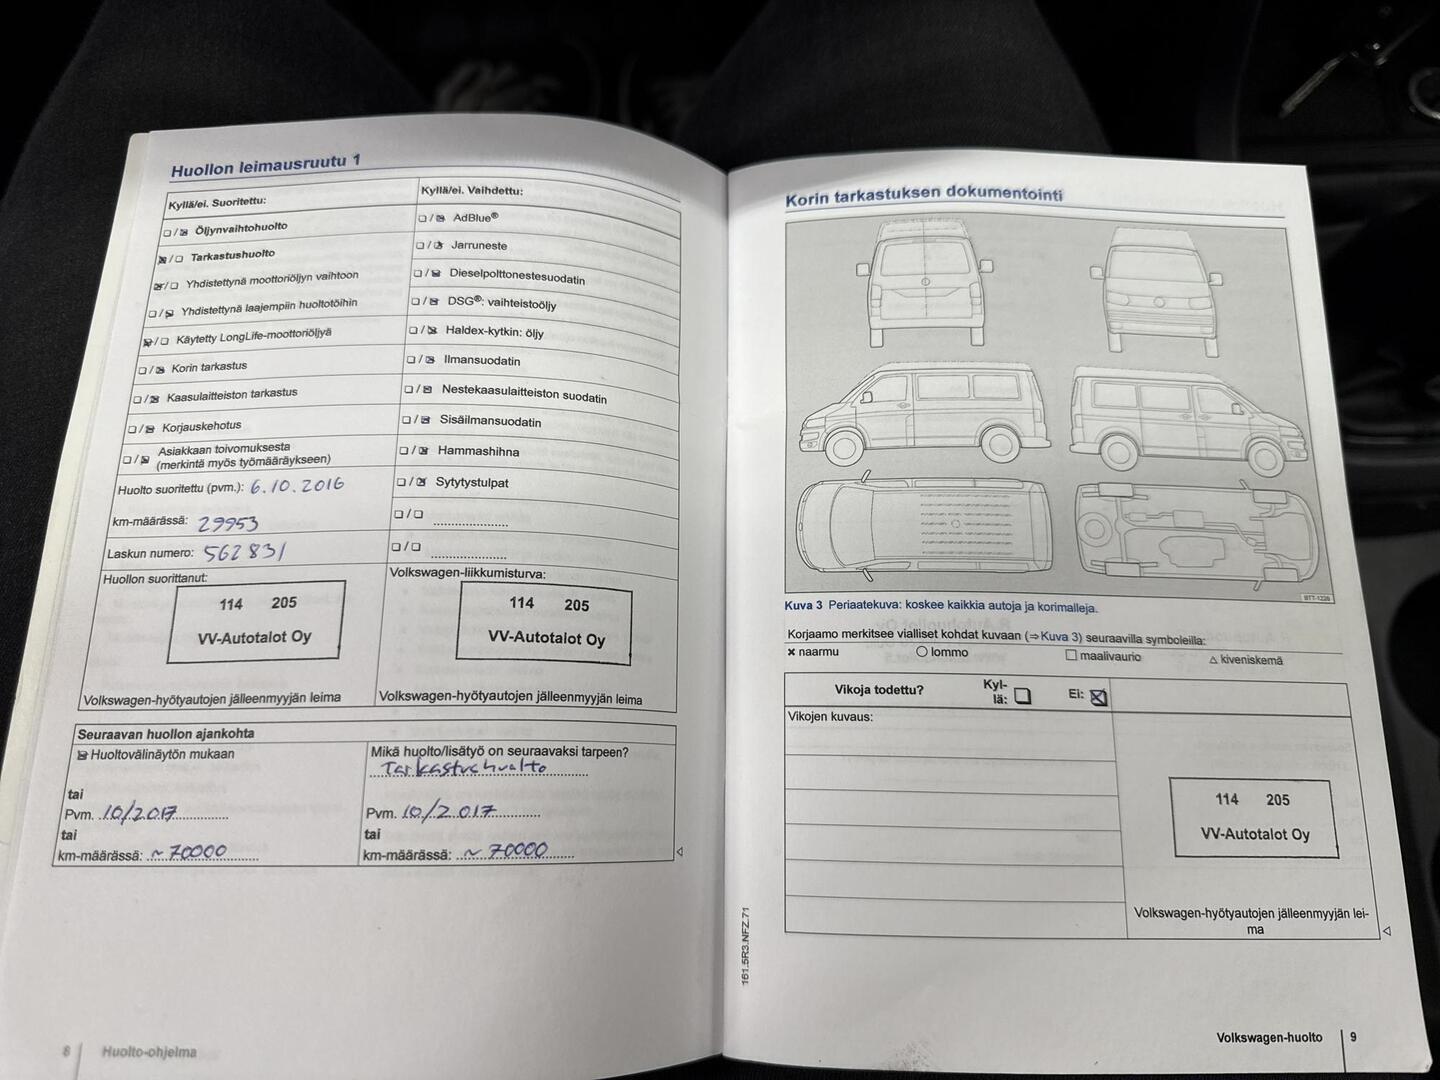 Huollon leimausruutu 1
Kyllä/ei. Suoritettu:
☐/☒ Öljynvaihtohuolto
☒/☐ Tarkastushuolto
☒/☐ Yhdistettynä moottoriöljyn vaihtoon
☐/☒ Yhdistettynä laajempiin huoltotöihin
☒/☐ Käytetty LongLife-moottoriöljyä
☐/☒ Korin tarkastus
☐/☒ Kaasulaitteiston tarkastus
☐/☒ Korjauskehotus
☐/☒ Asiakkaan toivomuksesta
(merkintä myös työmääräykseen)
Huolto suoritettu (pvm.): 6.10.2016
km-määrässä: 29953
Laskun numero: 562831
Huollon suorittanut:
114 205
VV-Autotalot Oy
Volkswagen-hyötyautojen jälleenmyyjän leima
Kyllä/ei. Vaihdettu:
☐/☒ AdBlue®
☐/☒ Jarruneste
☐/☒ Dieselpolttonestesuodatin
☐/☒ DSG®: vaihteistoöljy
☐/☒ Haldex-kytkin: öljy
☐/☒ Ilmansuodatin
☐/☒ Nestekaasulaitteiston suodatin
☐/☒ Sisäilmansuodatin
☐/☒ Hammashihna
☐/☒ Sytytystulpat
☐/☐ ....................
☐/☐ ....................
Volkswagen-liikkumisturva:
114 205
VV-Autotalot Oy
Volkswagen-hyötyautojen jälleenmyyjän leima
Seuraavan huollon ajankohta
☒ Huoltovälinäytön mukaan
tai
Pvm. 10/2017
tai
km-määrässä: ~ 70000
Mikä huolto/lisätyö on seuraavaksi tarpeen?
Tarkastushuolto
Pvm. 10/2017
tai
km-määrässä: ~ 70000
8 Huolto-ohjelma
Korin tarkastuksen dokumentointi
BTT-1226
Kuva 3 Periaatekuva: koskee kaikkia autoja ja korimalleja.
Korjaamo merkitsee vialliset kohdat kuvaan (⇒Kuva 3) seuraavilla symboleilla:
× naarmu ○ lommo □ maalivaurio △ kiveniskemä
Vikoja todettu? Kyl-
lä: ☐ Ei: ☒
Vikojen kuvaus:
114 205
VV-Autotalot Oy
Volkswagen-hyötyautojen jälleenmyyjän lei-
ma
161.5R3.NFZ.71
Volkswagen-huolto 9